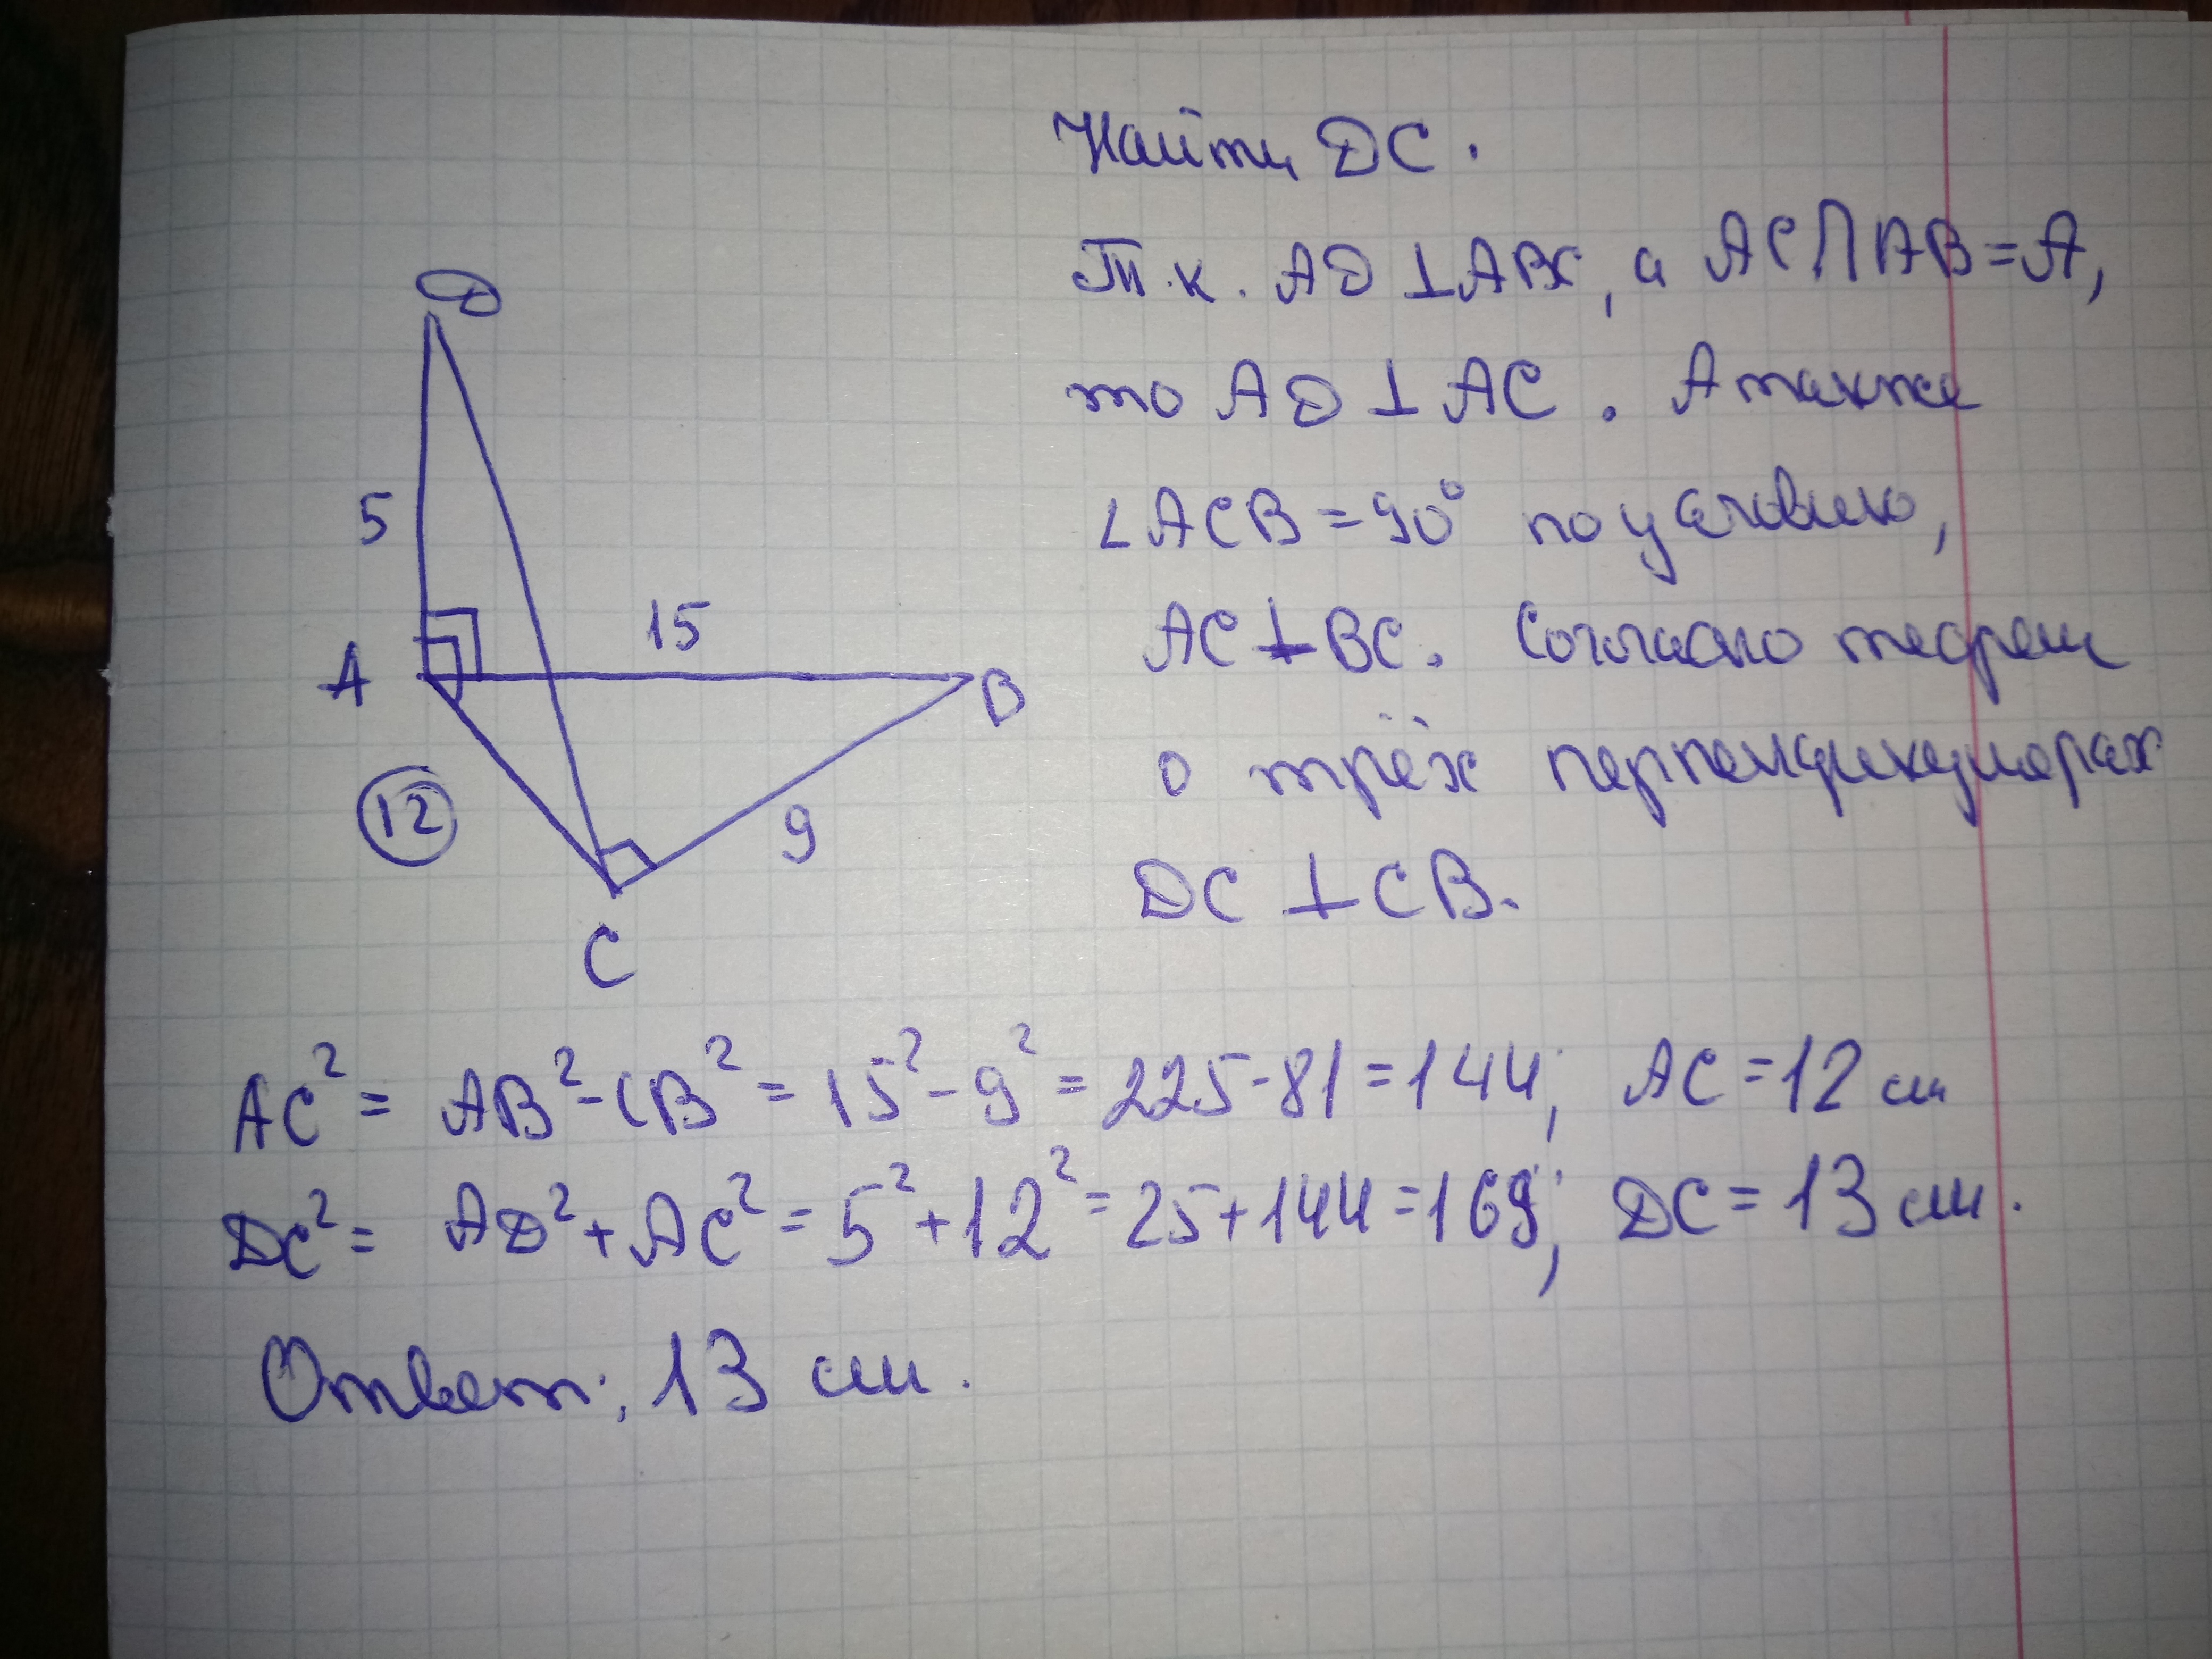 Найти DC.
Т.к. AD ⊥ ABC, а AC ∩ AB = A,
то AD ⊥ AC. А также
∠ACB = 90° по условию,
AC ⊥ BC. Согласно теореме
о трёх перпендикулярах
DC ⊥ CB.
D
5
15
A
B
12
9
C
AC² = AB² - CB² = 15² - 9² = 225 - 81 = 144; AC = 12 см
DC² = AD² + AC² = 5² + 12² = 25 + 144 = 169; DC = 13 см.
Ответ: 13 см.